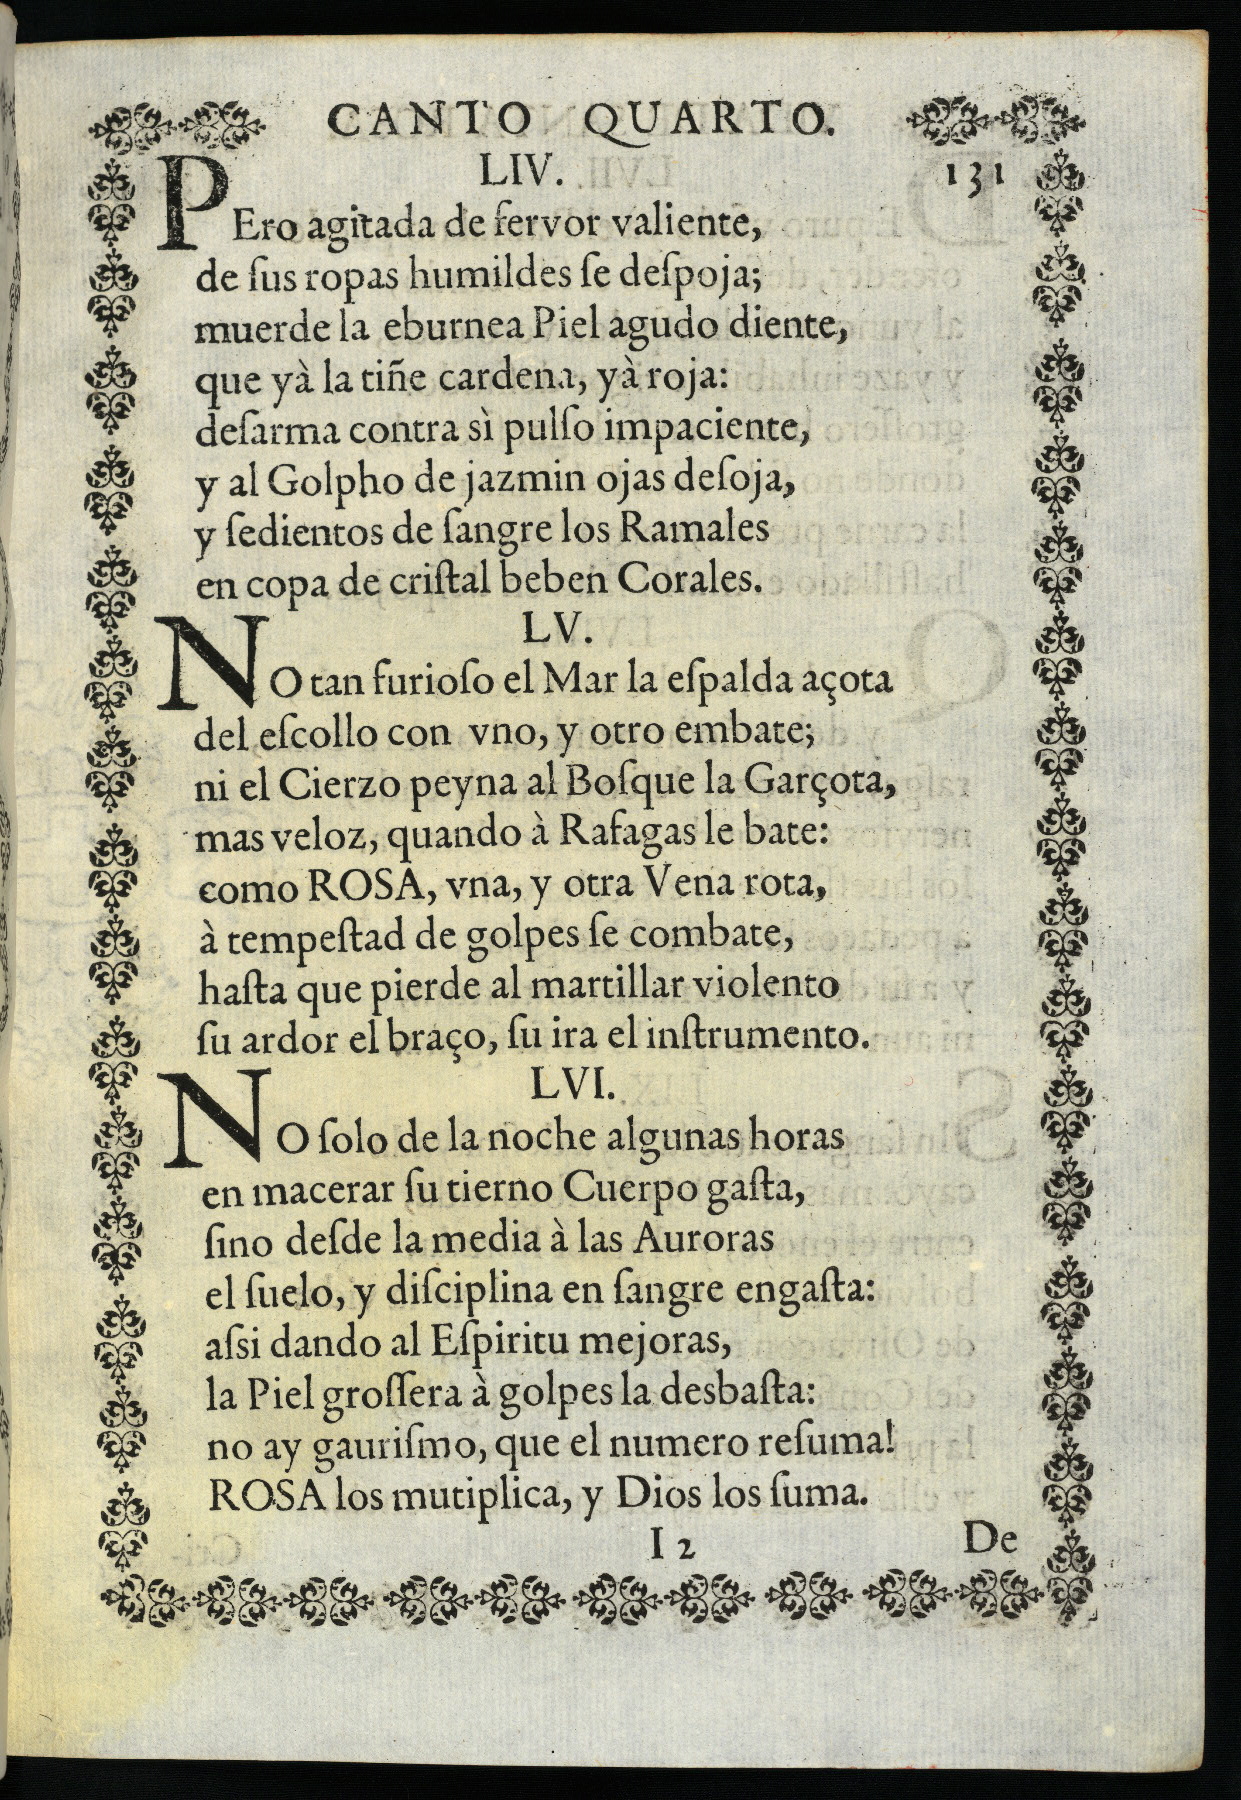 CANTO QUARTO.
LIV.
131
PEro agitada de fervor valiente,
de ſus ropas humildes ſe deſpoja;
muerde la eburnea Piel agudo diente,
que yà la tiñe cardena, yà roja:
deſarma contra sì pulſo impaciente,
y al Golpho de jazmin ojas deſoja,
y ſedientos de ſangre los Ramales
en copa de criſtal beben Corales.
LV.
NO tan furioſo el Mar la eſpalda açota
del eſcollo con vno, y otro embate;
ni el Cierzo peyna al Boſque la Garçota,
mas veloz, quando à Rafagas le bate:
como ROSA, vna, y otra Vena rota,
à tempeſtad de golpes ſe combate,
haſta que pierde al martillar violento
ſu ardor el braço, ſu ira el inſtrumento.
LVI.
NO ſolo de la noche algunas horas
en macerar ſu tierno Cuerpo gaſta,
ſino deſde la media à las Auroras
el ſuelo, y diſciplina en ſangre engaſta:
aſsi dando al Eſpiritu mejoras,
la Piel groſſera à golpes la desbaſta:
no ay gauriſmo, que el numero reſuma!
ROSA los mutiplica, y Dios los ſuma.
I 2
De